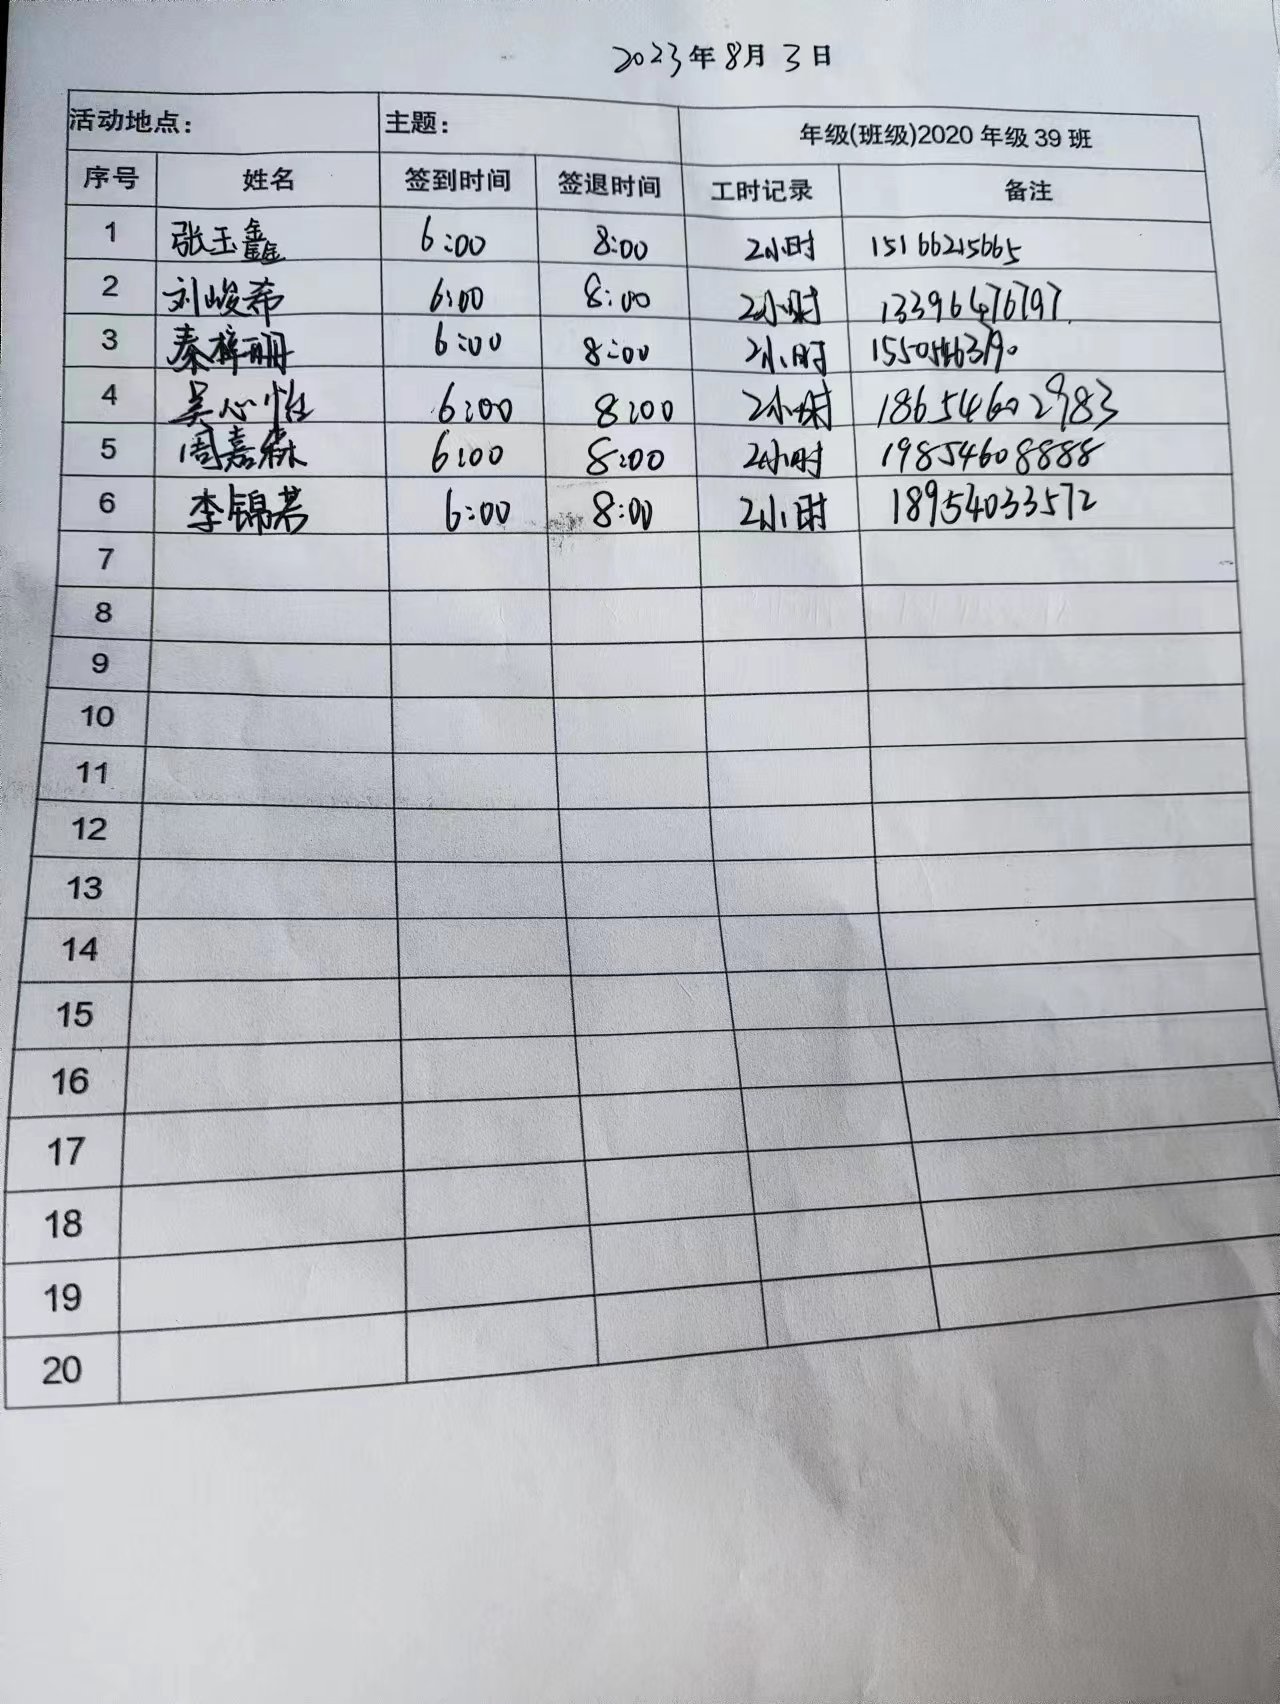 2023年8月3日
活动地点： 主题： 年级(班级)2020年级39班
序号 姓名 签到时间 签退时间 工时记录 备注
1 张玉鑫 6:00 8:00 2小时 15166215665
2 刘峻希 6:00 8:00 2小时 13396476797
3 秦梓丽 6:00 8:00 2小时
4 吴心怡 6:00 8:00 2小时 18654602983
5 周嘉森 6:00 8:00 2小时 19854608888
6 李锦若 6:00 8:00 2小时 18954033572
7
8
9
10
11
12
13
14
15
16
17
18
19
20